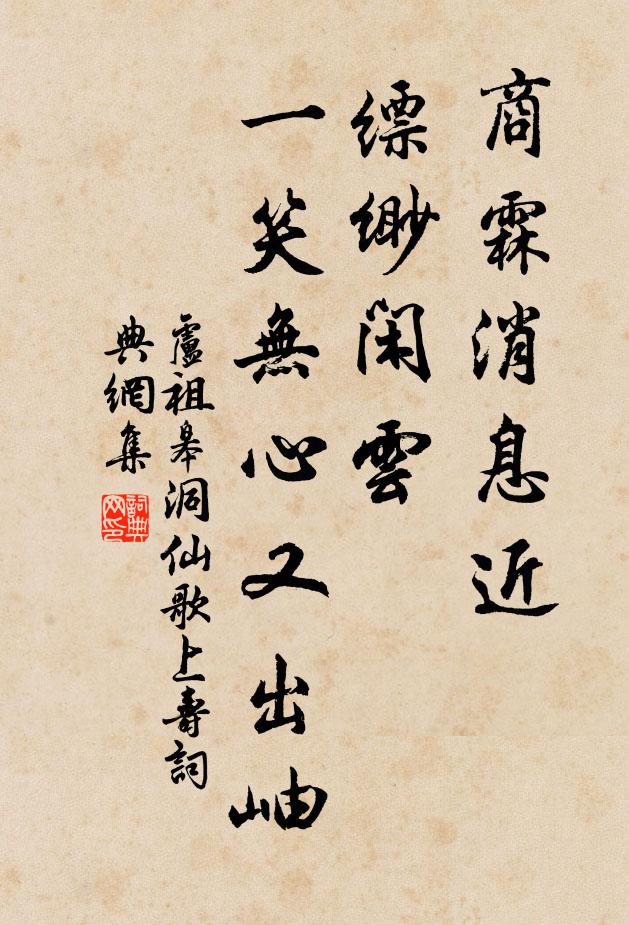 商霖消息近
縹緲閑雲
一笑無心又出岫
盧祖皋洞仙歌上壽詞
典網集
詞典網印